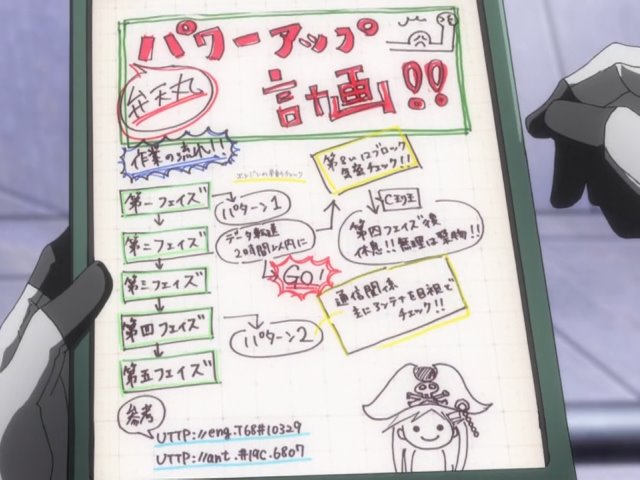 パワーアップ
計画!!
弁天丸
作業の流れ!!
第一フェイズ
第二フェイズ
第三フェイズ
第四フェイズ
第五フェイズ
パターン1
データ転送
2時間以内に
GO!
パターン2
ブロック
気密チェック!!
第四フェイズ後
休息!!無理は禁物!!
通信関係
主にアンテナを目視で
チェック!!
参考
UTTP://eng.T68#10329
UTTP://ant.#19C.6807